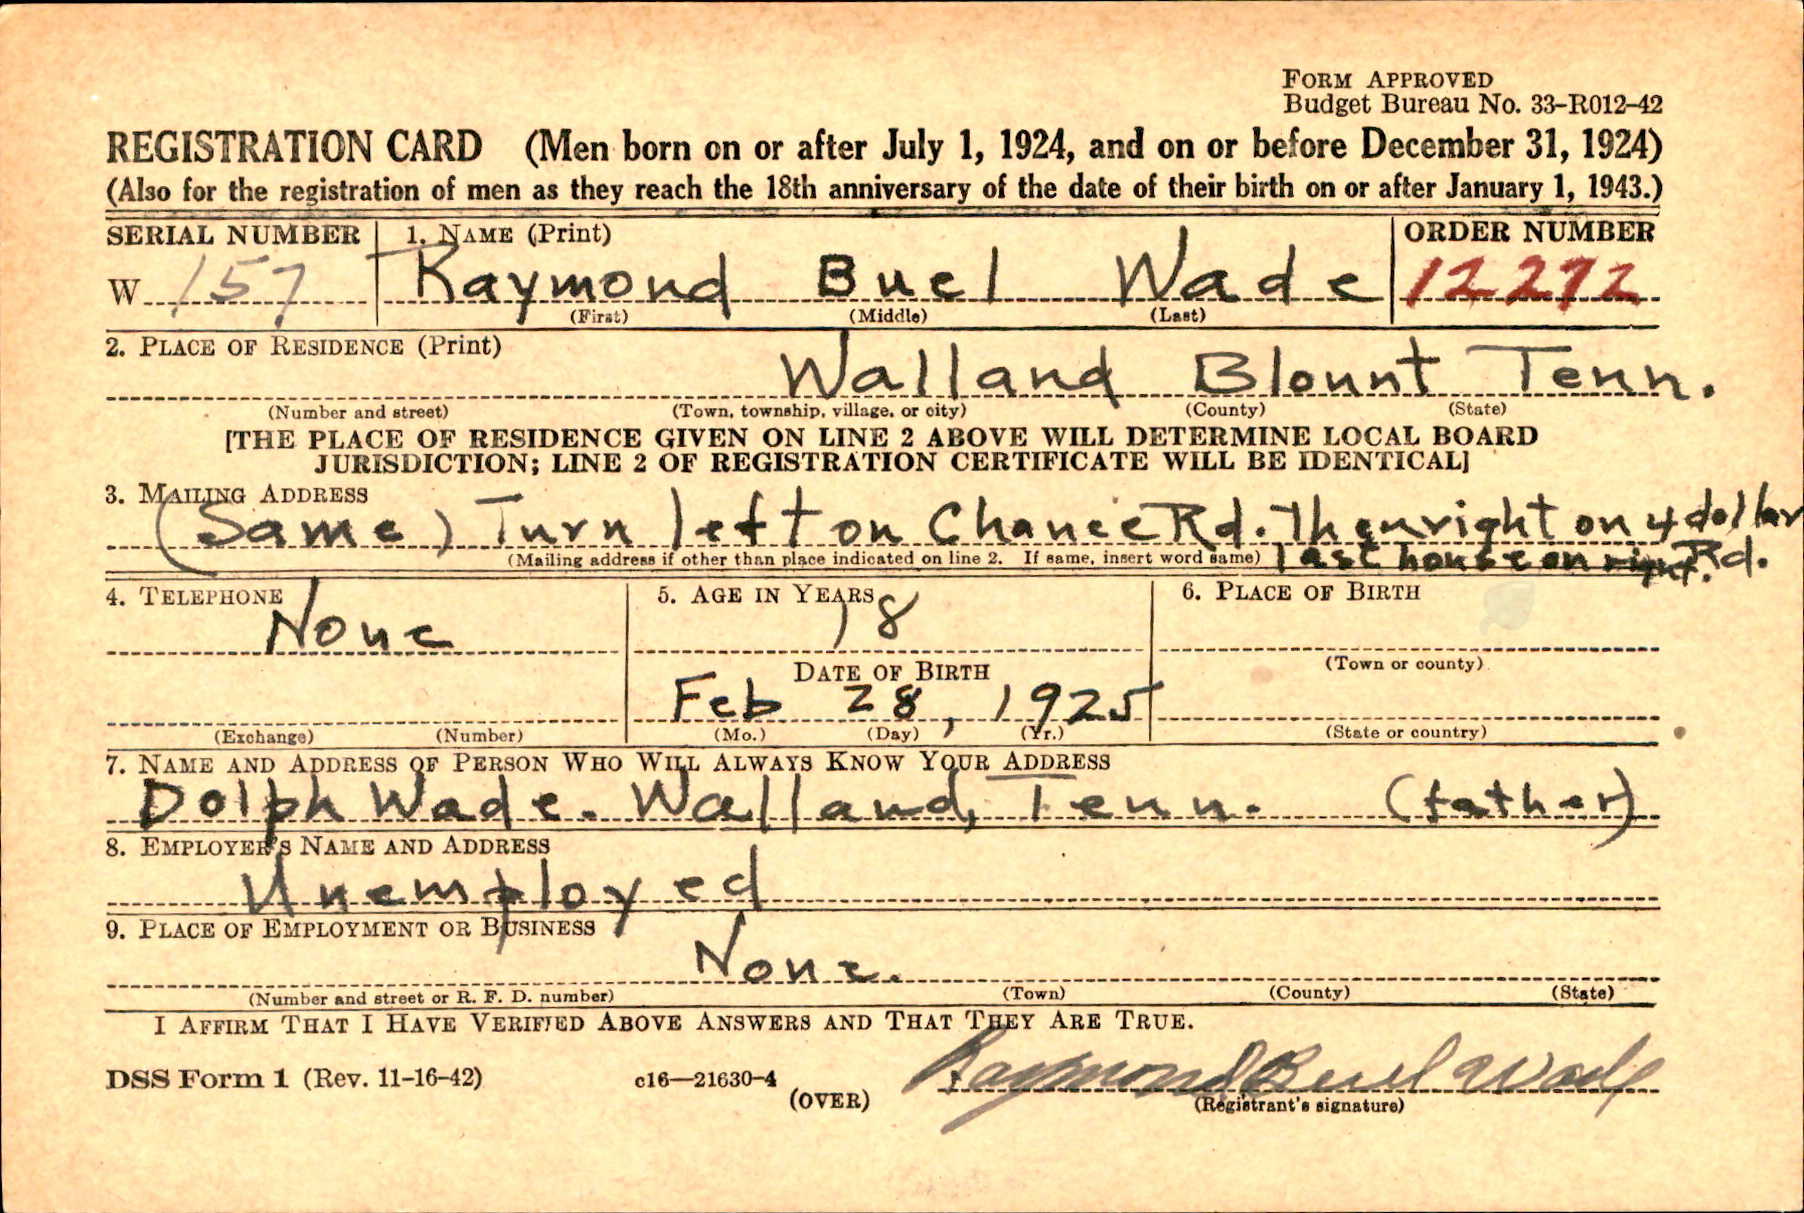 FORM APPROVED
Budget Bureau No. 33-R012-42
REGISTRATION CARD (Men born on or after July 1, 1924, and on or before December 31, 1924)
(Also for the registration of men as they reach the 18th anniversary of the date of their birth on or after January 1, 1943.)
SERIAL NUMBER 1. NAME (Print) ORDER NUMBER
W 157 Raymond Buel Wade 12272
(First) (Middle) (Last)
2. PLACE OF RESIDENCE (Print)
Walland Blount Tenn.
(Number and street) (Town, township, village, or city) (County) (State)
[THE PLACE OF RESIDENCE GIVEN ON LINE 2 ABOVE WILL DETERMINE LOCAL BOARD
JURISDICTION; LINE 2 OF REGISTRATION CERTIFICATE WILL BE IDENTICAL]
3. MAILING ADDRESS
(Same) Turn left on Chance Rd. Then right on 4 dollar
(Mailing address if other than place indicated on line 2. If same, insert word same) last house on right. Rd.
4. TELEPHONE 5. AGE IN YEARS 6. PLACE OF BIRTH
None 18
(Town or county)
DATE OF BIRTH
Feb 28, 1925
(Exchange) (Number) (Mo.) (Day) (Yr.) (State or country)
7. NAME AND ADDRESS OF PERSON WHO WILL ALWAYS KNOW YOUR ADDRESS
Dolph Wade. Walland, Tenn. (father)
8. EMPLOYER'S NAME AND ADDRESS
Unemployed
9. PLACE OF EMPLOYMENT OR BUSINESS
None.
(Number and street or R. F. D. number) (Town) (County) (State)
I AFFIRM THAT I HAVE VERIFIED ABOVE ANSWERS AND THAT THEY ARE TRUE.
DSS Form 1 (Rev. 11-16-42) c16—21630-4 (OVER) Raymond Buel Wade
(Registrant's signature)